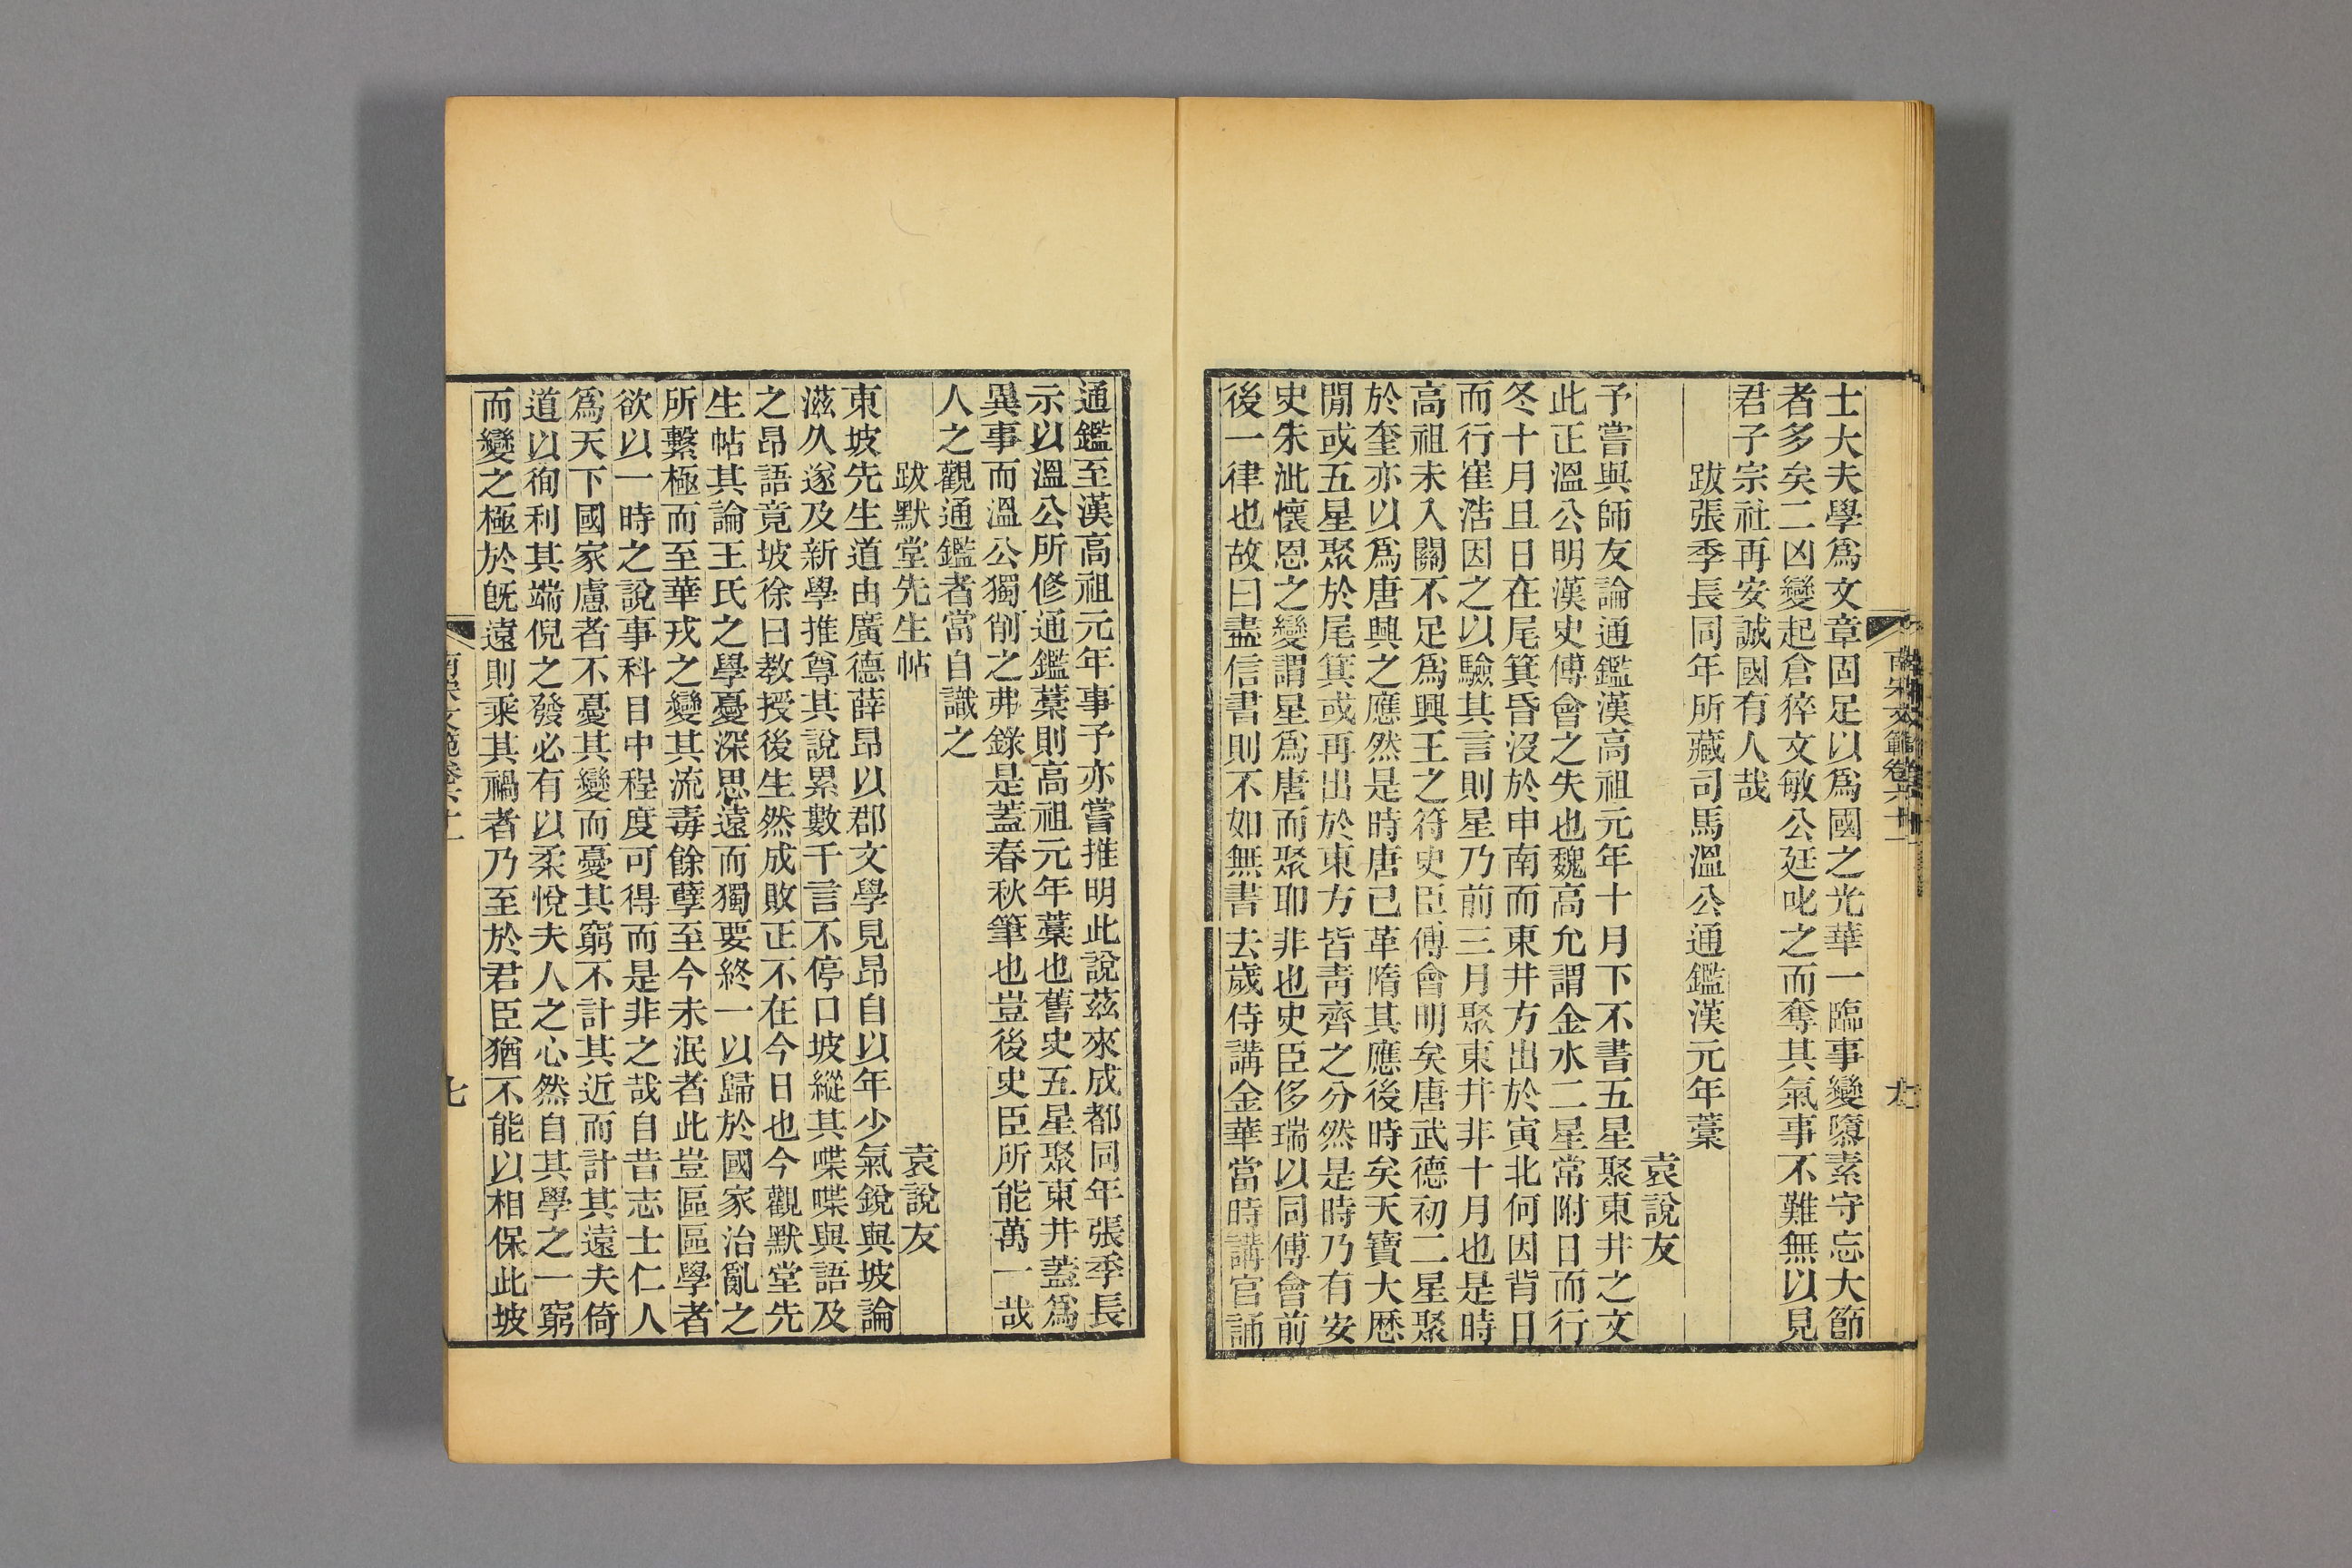 士大夫學爲文章固足以爲國之光華一臨事變隳素守忘大節
者多矣二凶變起倉猝文敏公廷叱之而奪其氣事不難無以見
君子宗社再安誠國有人哉
跋張季長同年所藏司馬溫公通鑑漢元年藳
袁說友
予嘗與師友論通鑑漢高祖元年十月下不書五星聚東井之文
此正溫公明漢史傅會之失也魏高允謂金水二星常附日而行
冬十月且日在尾箕昏沒於申南而東井方出於寅北何因背日
而行崔浩因之以驗其言則星乃前三月聚東井非十月也是時
高祖未入關不足爲興王之符史臣傅會明矣唐武德初二星聚
於奎亦以爲唐興之應然是時唐已革隋其應後時矣天寶大厯
閒或五星聚於尾箕或再出於東方皆青齊之分然是時乃有安
史朱泚懷恩之變謂星爲唐而聚耶非也史臣侈瑞以同傅會前
後一律也故曰盡信書則不如無書去歲侍講金華當時講官誦
通鑑至漢高祖元年事予亦嘗推明此說茲來成都同年張季長
示以溫公所修通鑑藳則高祖元年藳也舊史五星聚東井蓋爲
異事而溫公獨削之弗錄是蓋春秋筆也豈後史臣所能萬一哉
人之觀通鑑者當自識之
跋默堂先生帖
袁說友
東坡先生道由廣德薛昂以郡文學見昂自以年少氣銳與坡論
滋久遂及新學推尊其說累數千言不停口坡縱其喋喋與語及
之昂語竟坡徐曰教授後生然成敗正不在今日也今觀默堂先
生帖其論王氏之學憂深思遠而獨要終一以歸於國家治亂之
所繫極而至華戎之變其流毒餘孽至今未泯者此豈區區學者
欲以一時之說事科目中程度可得而是非之哉自昔志士仁人
爲天下國家慮者不憂其變而憂其窮不計其近而計其遠夫倚
道以徇利其端倪之發必有以柔悅夫人之心然自其學之一窮
而變之極於旣遠則乘其禍者乃至於君臣猶不能以相保此坡